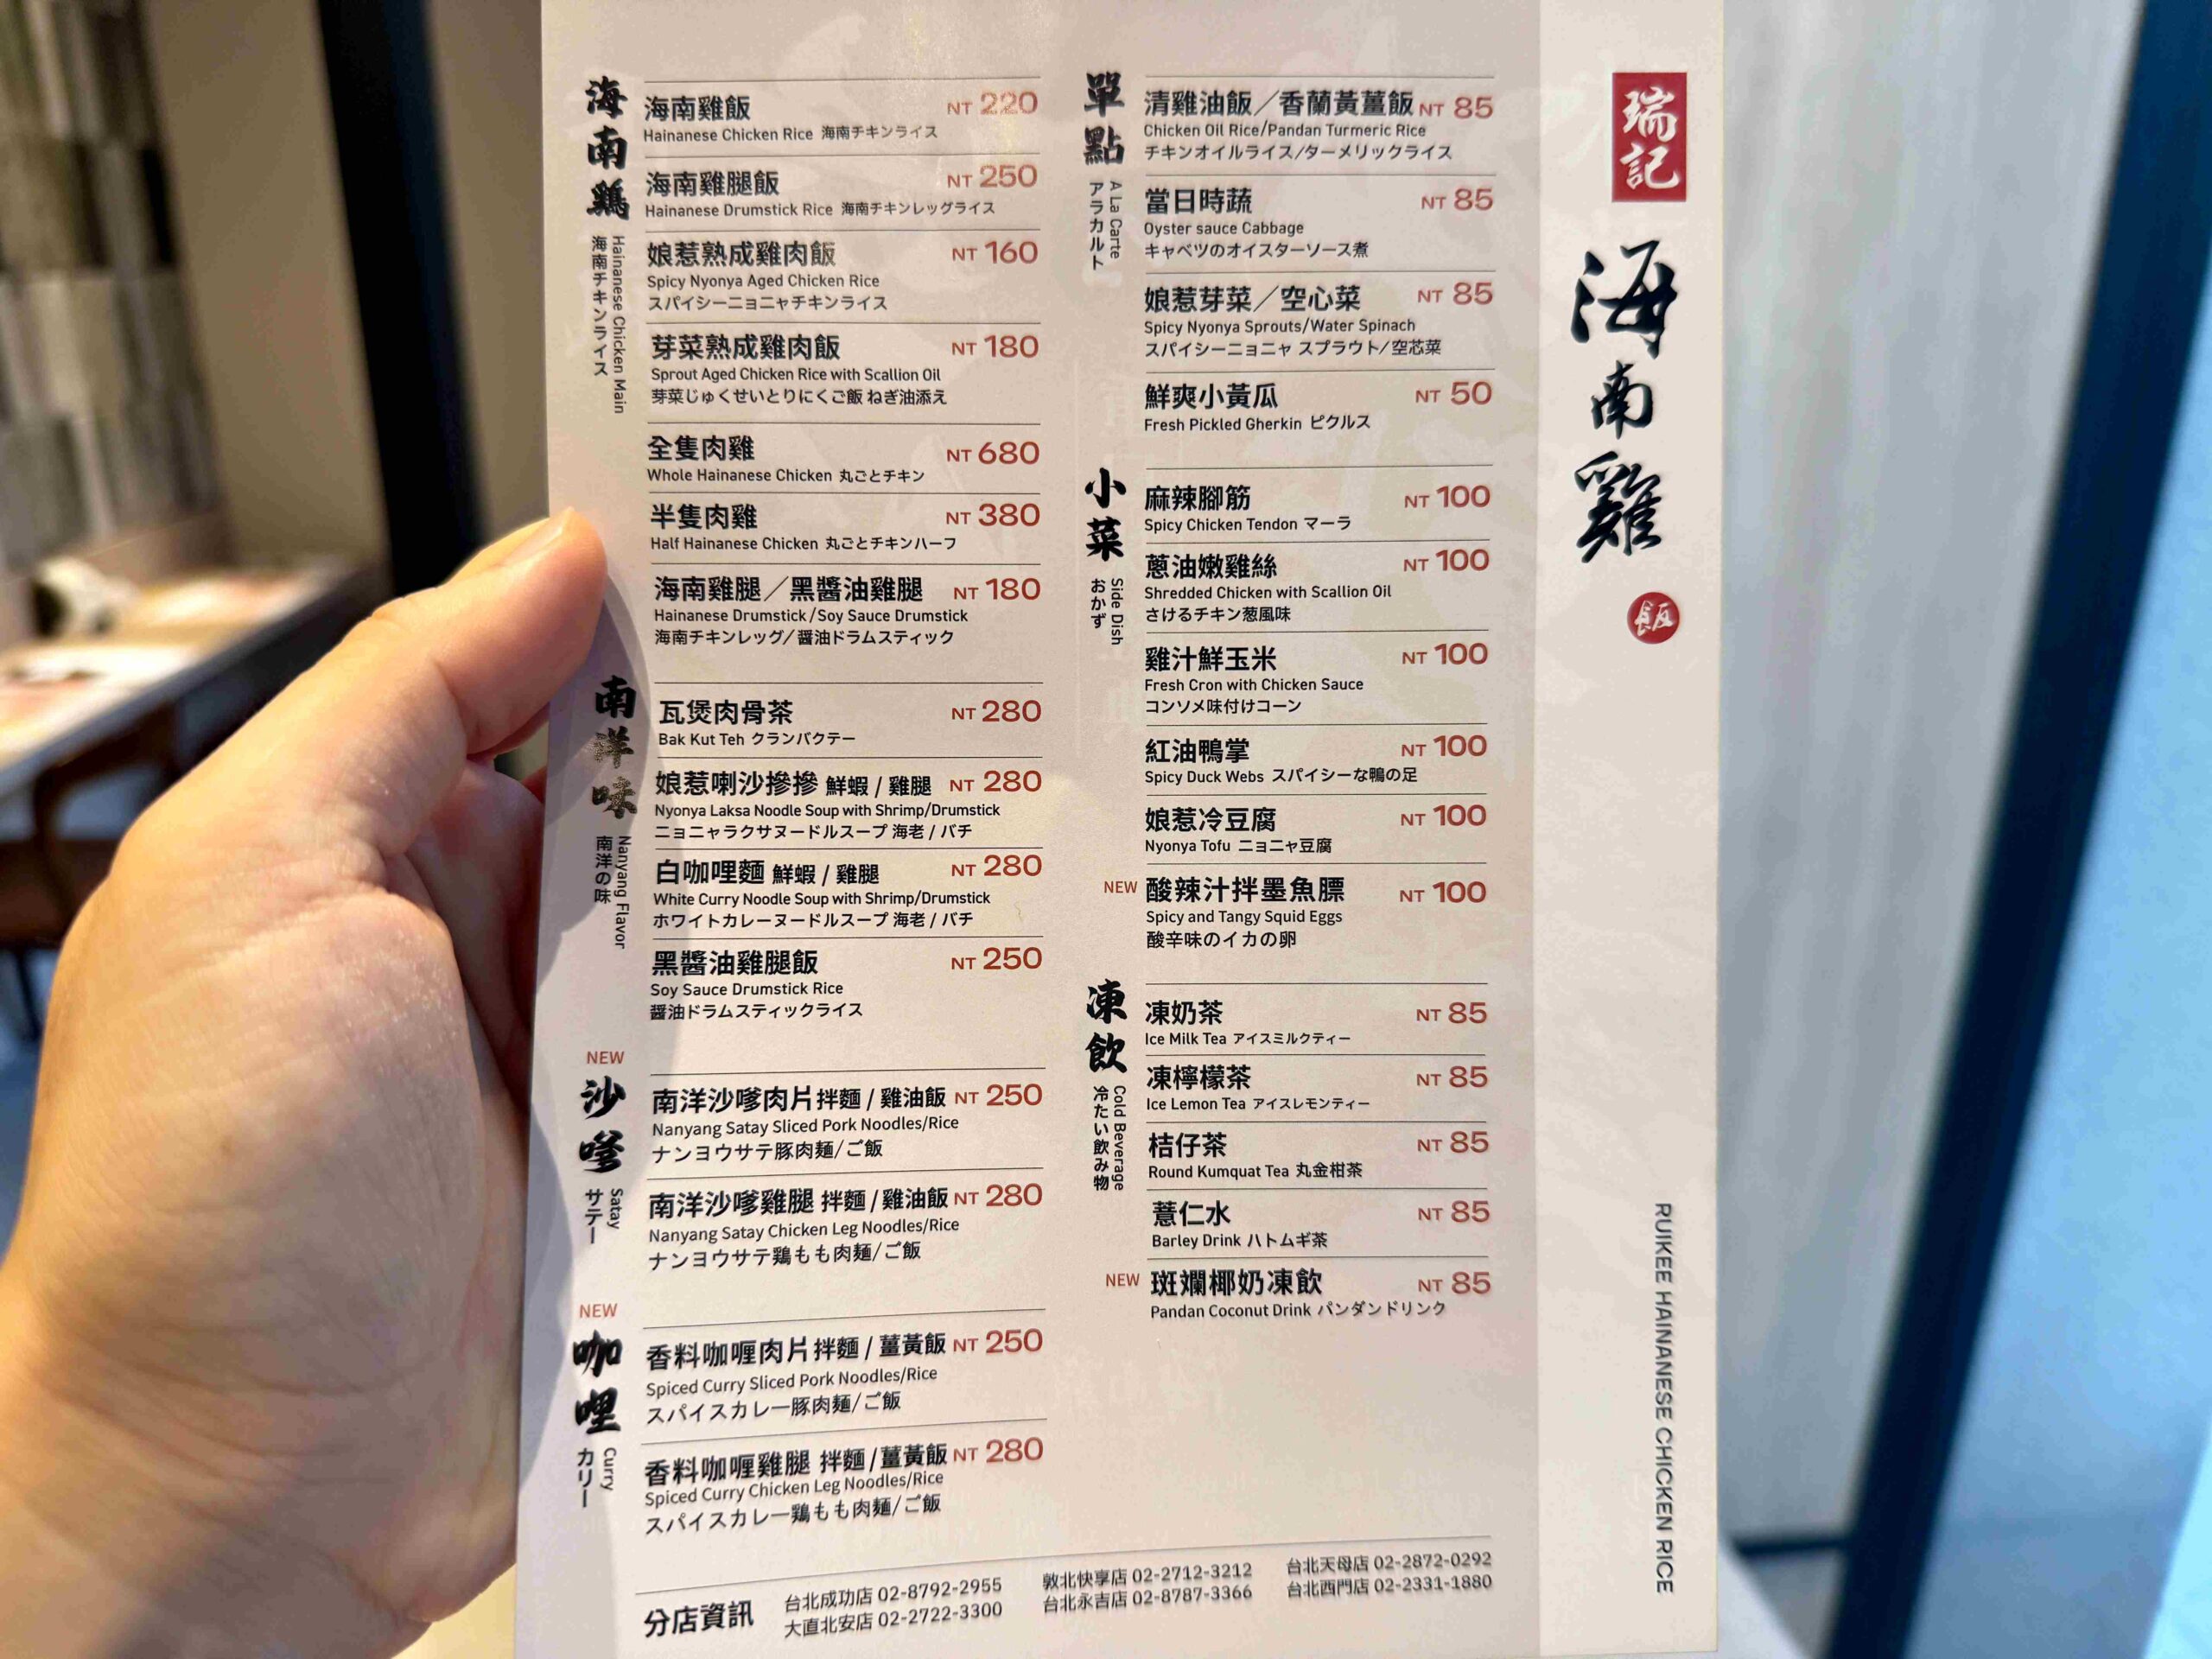 海南鷄
Hainanese Chicken Main
海南チキンライス
海南雞飯 NT 220
Hainanese Chicken Rice 海南チキンライス
海南雞腿飯 NT 250
Hainanese Drumstick Rice 海南チキンレッグライス
娘惹熟成雞肉飯 NT 160
Spicy Nyonya Aged Chicken Rice
スパイシーニョニャチキンライス
芽菜熟成雞肉飯 NT 180
Sprout Aged Chicken Rice with Scallion Oil
芽菜じゅくせいとりにくご飯 ねぎ油添え
全隻肉雞 NT 680
Whole Hainanese Chicken 丸ごとチキン
半隻肉雞 NT 380
Half Hainanese Chicken 丸ごとチキンハーフ
海南雞腿／黑醬油雞腿 NT 180
Hainanese Drumstick/Soy Sauce Drumstick
海南チキンレッグ/醤油ドラムスティック
南洋味
Nanyang Flavor
南洋の味
瓦煲肉骨茶 NT 280
Bak Kut Teh クランバクテー
娘惹喇沙摻摻 鮮蝦 / 雞腿 NT 280
Nyonya Laksa Noodle Soup with Shrimp/Drumstick
ニョニャラクサヌードルスープ 海老 / バチ
白咖哩麵 鮮蝦 / 雞腿 NT 280
White Curry Noodle Soup with Shrimp/Drumstick
ホワイトカレーヌードルスープ 海老 / バチ
黑醬油雞腿飯 NT 250
Soy Sauce Drumstick Rice
醤油ドラムスティックライス
NEW
沙嗲
Satay
サテー
南洋沙嗲肉片拌麵 / 雞油飯 NT 250
Nanyang Satay Sliced Pork Noodles/Rice
ナンヨウサテ豚肉麺/ご飯
南洋沙嗲雞腿 拌麵 / 雞油飯 NT 280
Nanyang Satay Chicken Leg Noodles/Rice
ナンヨウサテ鶏もも肉麺/ご飯
NEW
咖哩
Curry
カリー
香料咖喱肉片拌麵 / 薑黃飯 NT 250
Spiced Curry Sliced Pork Noodles/Rice
スパイスカレー豚肉麺/ご飯
香料咖喱雞腿 拌麵 /薑黃飯 NT 280
Spiced Curry Chicken Leg Noodles/Rice
スパイスカレー鶏もも肉麺/ご飯
單點
A La Carte
アラカルト
清雞油飯／香蘭黃薑飯 NT 85
Chicken Oil Rice/Pandan Turmeric Rice
チキンオイルライス/ターメリックライス
當日時蔬 NT 85
Oyster sauce Cabbage
キャベツのオイスターソース煮
娘惹芽菜／空心菜 NT 85
Spicy Nyonya Sprouts/Water Spinach
スパイシーニョニャ スプラウト/空芯菜
鮮爽小黃瓜 NT 50
Fresh Pickled Gherkin ピクルス
小菜
Side Dish
おかず
麻辣腳筋 NT 100
Spicy Chicken Tendon マーラ
蔥油嫩雞絲 NT 100
Shredded Chicken with Scallion Oil
さけるチキン葱風味
雞汁鮮玉米 NT 100
Fresh Cron with Chicken Sauce
コンソメ味付けコーン
紅油鴨掌 NT 100
Spicy Duck Webs スパイシーな鴨の足
娘惹冷豆腐 NT 100
Nyonya Tofu ニョニャ豆腐
NEW 酸辣汁拌墨魚膘 NT 100
Spicy and Tangy Squid Eggs
酸辛味のイカの卵
凍飲
Cold Beverage
冷たい飲み物
凍奶茶 NT 85
Ice Milk Tea アイスミルクティー
凍檸檬茶 NT 85
Ice Lemon Tea アイスレモンティー
桔仔茶 NT 85
Round Kumquat Tea 丸金柑茶
薏仁水 NT 85
Barley Drink ハトムギ茶
NEW 斑斕椰奶凍飲 NT 85
Pandan Coconut Drink パンダンドリンク
分店資訊
台北成功店 02-8792-2955
大直北安店 02-2722-3300
敦北快享店 02-2712-3212
台北永吉店 02-8787-3366
台北天母店 02-2872-0292
台北西門店 02-2331-1880
瑞記
海南雞
飯
RUIKEE HAINANESE CHICKEN RICE